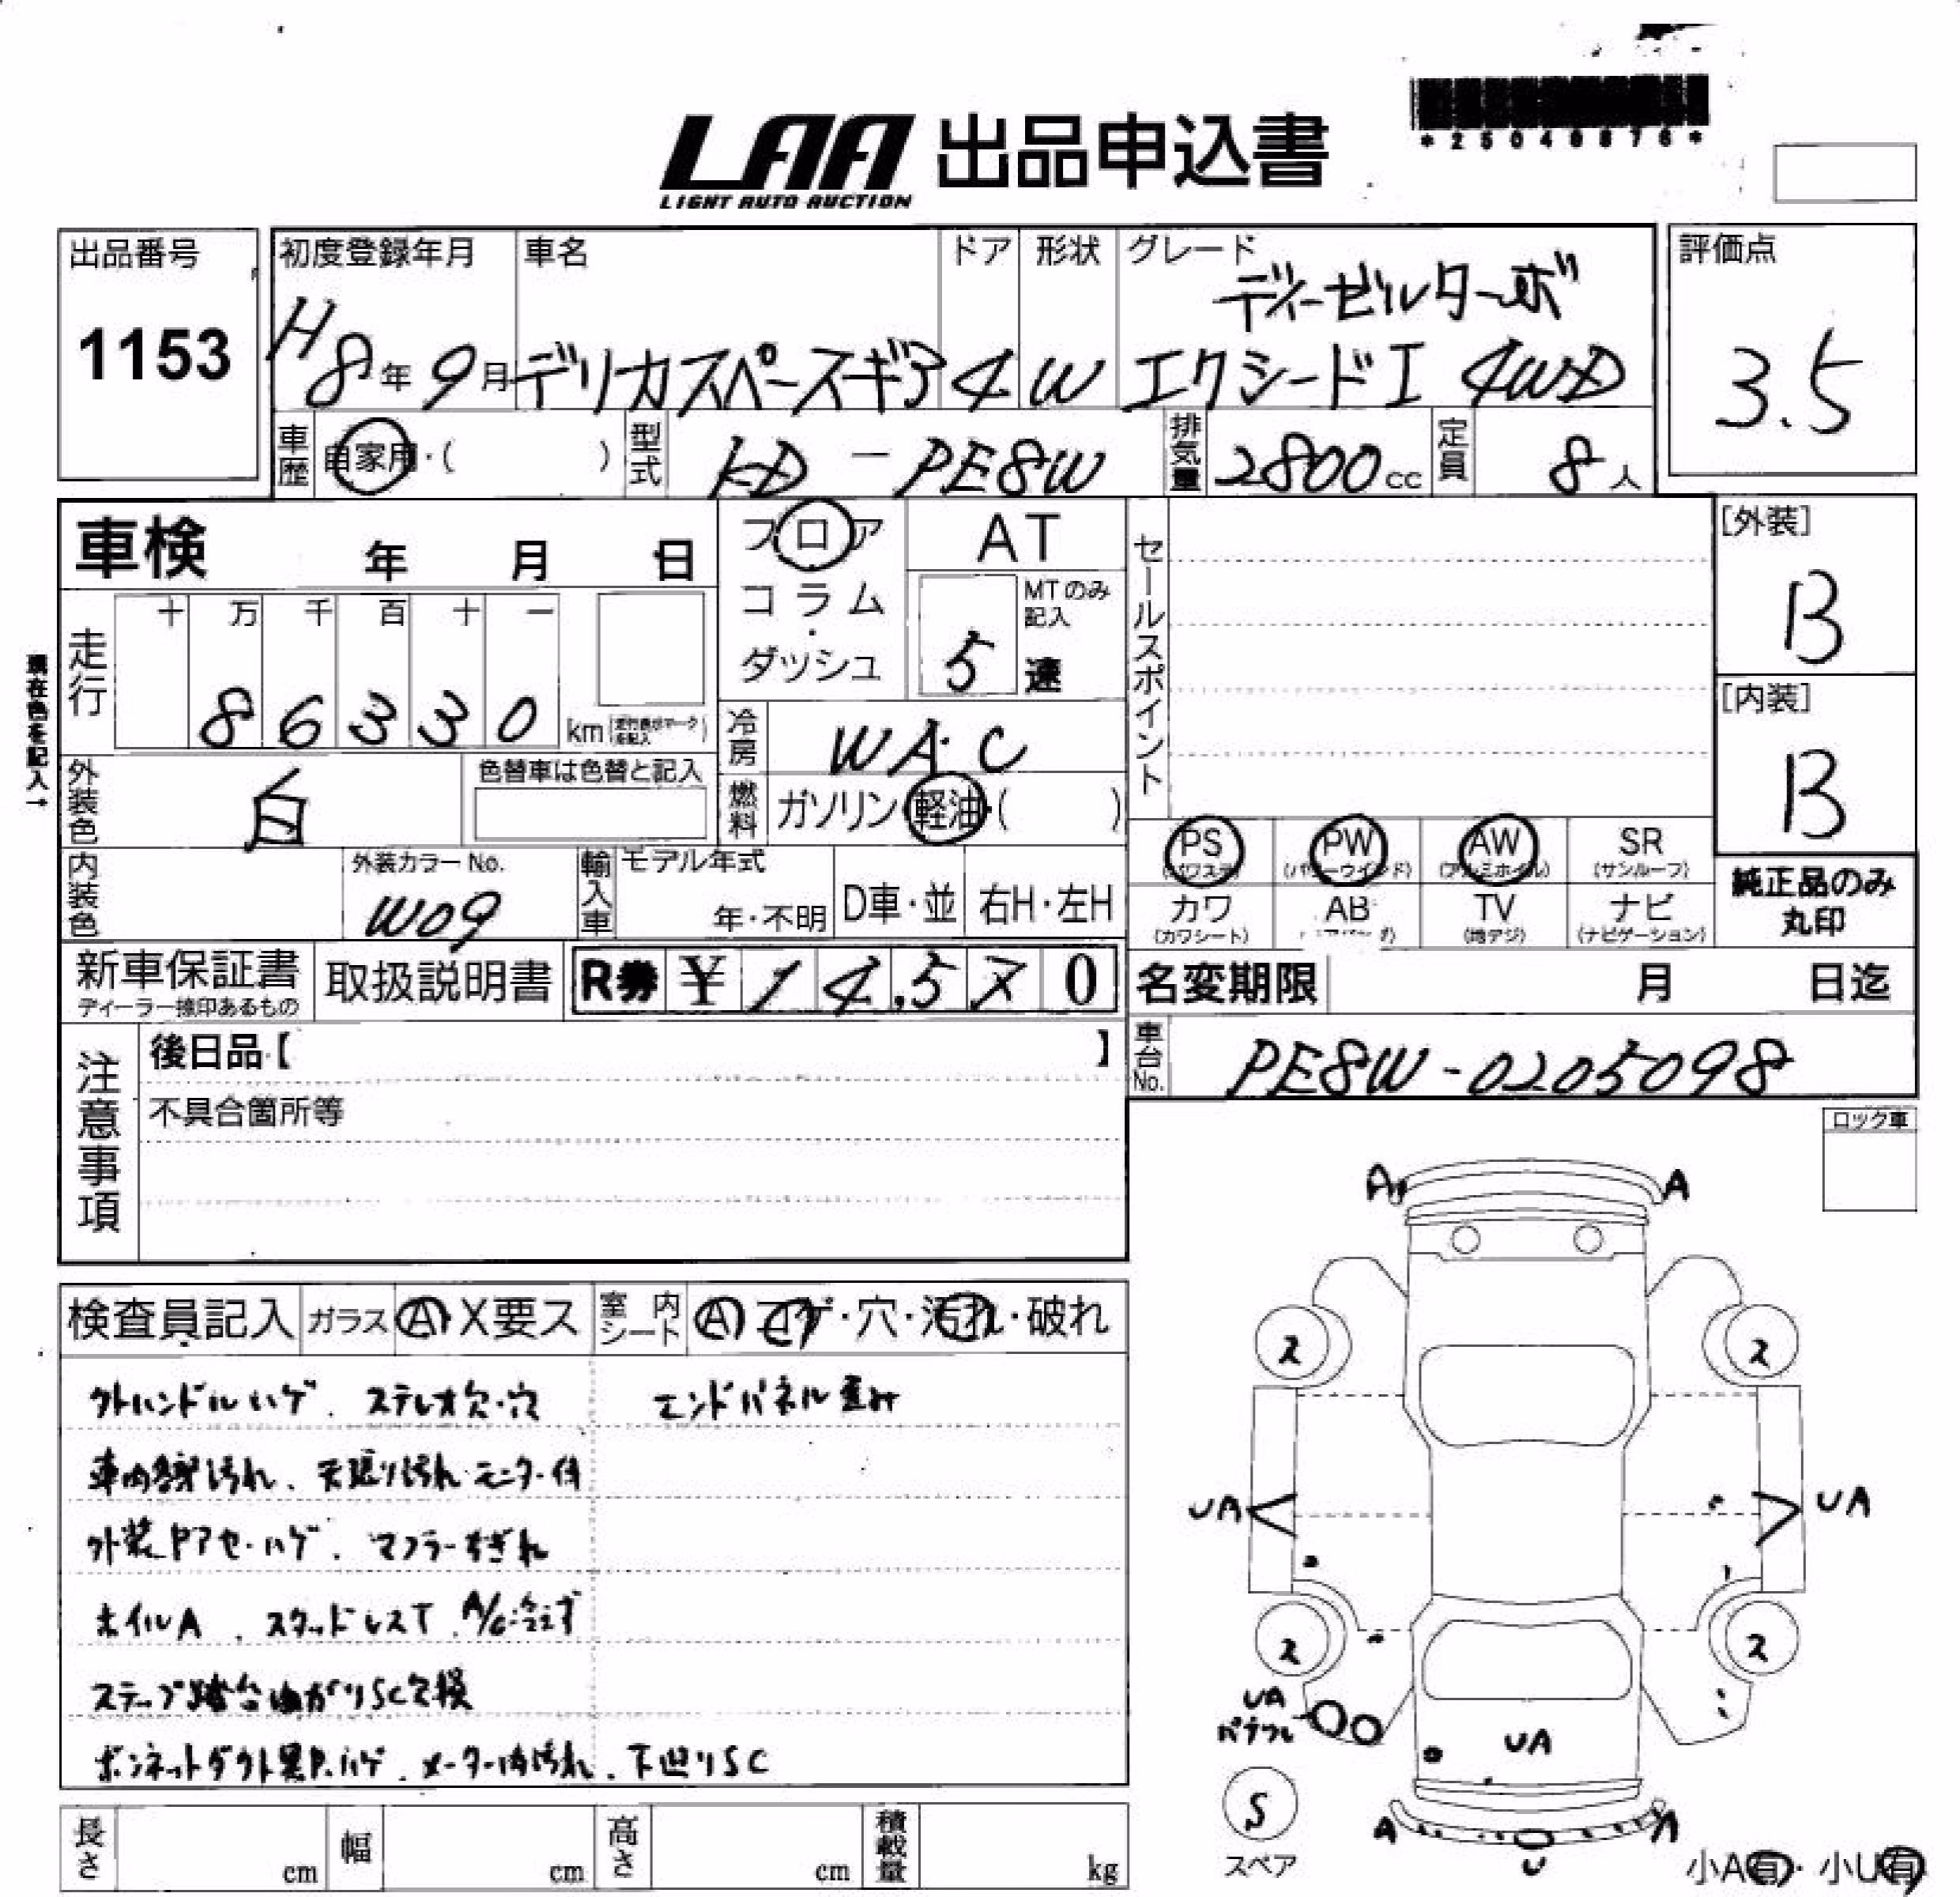 LAA 出品申込書
LIGHT AUTO AUCTION
*25040876*
出品番号
1153
初度登録年月
H8年9月
車名
デリカスペースギア
ドア
4
形状
W
グレード
ディーゼルターボ
エクシードI 4WD
評価点
3.5
車歴
自家用・( )
型式
KD-PE8W
排気量
2800cc
定員
8人
車検 年 月 日
フロア
コラム
・
ダッシュ
AT
MTのみ記入
5速
セールスポイント
[外装]
B
[内装]
B
現在色を記入→
走行
十 万 千 百 十 一
8 6 3 3 0 km
冷房
WAC
外装色
白
色替車は色替と記入
燃料
ガソリン・軽油・( )
PS
PW
AW
SR
(パワステ) (パワーウインド) (アルミホイル) (サンルーフ)
カワ
AB
TV
ナビ
(カワシート)
(地デジ) (ナビゲーション)
純正品のみ
丸印
内装色
外装カラーNo.
W09
輸入車
モデル年式
年・不明
D車・並
右H・左H
新車保証書
ディーラー捺印あるもの
取扱説明書
R券 ¥ 14,570
名変期限 月 日迄
車台No.
PE8W-0205098
注意事項
後日品【 】
不具合箇所等
ロック車
検査員記入
ガラス
A X要ス
室内シート
A コゲ・穴・汚れ・破れ
外ハンドルハゲ、ステレオ欠・穴
エンドパネル歪み
車内各部汚れ、天張り汚れ モニター付
外装Pアセ・ハゲ、マフラーちぎれ
ホイルA、スタッドレスT、A/C冷えず
ステップ踏台曲がりSC欠損
ボンネットダクト黒P.ハゲ、メーター内汚れ、下廻りSC
A
A
2
2
UA
UA
2
2
UA
UA
S
スペア
A
U
小A有・小U有
長さ cm
幅 cm
高さ cm
積載量 kg